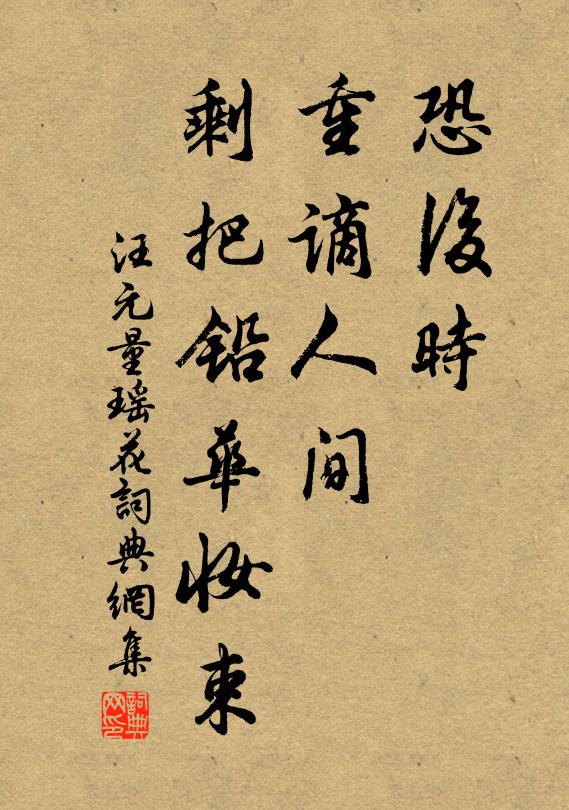 恐後時
重謫人間
剩把鉛華妝束
汪元量瑶花詞典網集
詞典网印